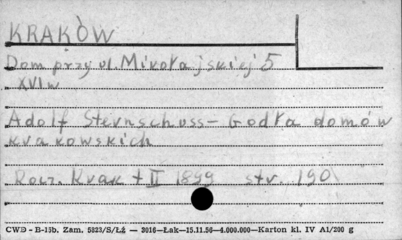 KRAKÓW
Dom przy ul. Mikołajskiej 5
XVI w
Adolf Sternschuss – Godła domów
krakowskich
Rocz. Krak t II 1899 str. 190
CWD - B-15b. Zam. 5823/S/Łż — 3016—Łak—15.11.56—4.000.000—Karton kl. IV A1/200 g